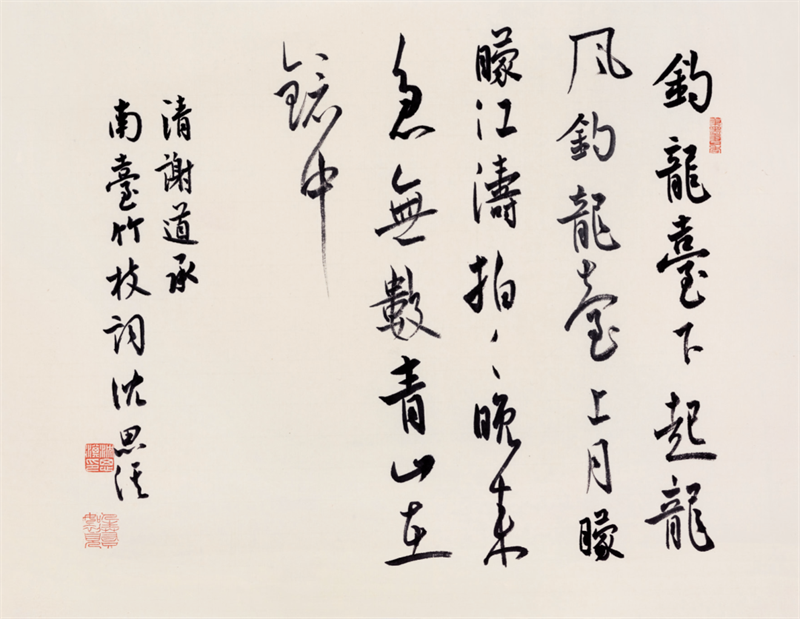 釣龍臺下起龍
風釣龍臺上月朦
朦江濤拍〻晚來
急無數青山在
鏡中
清謝道承
南臺竹枝詞沈思